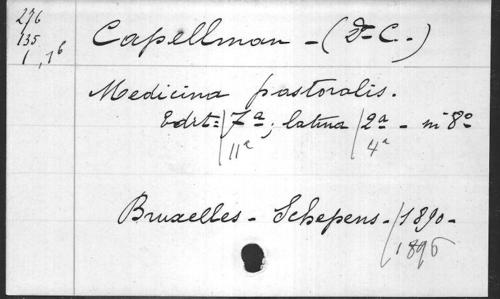 276
135
1, 7b
Capellman - (Dr C.)
Medicina pastoralis.
Edit = / 7ª ; latina / 2ª - in 8º
11ª 4ª
Bruxelles - Schepens - / 1890 -
1896